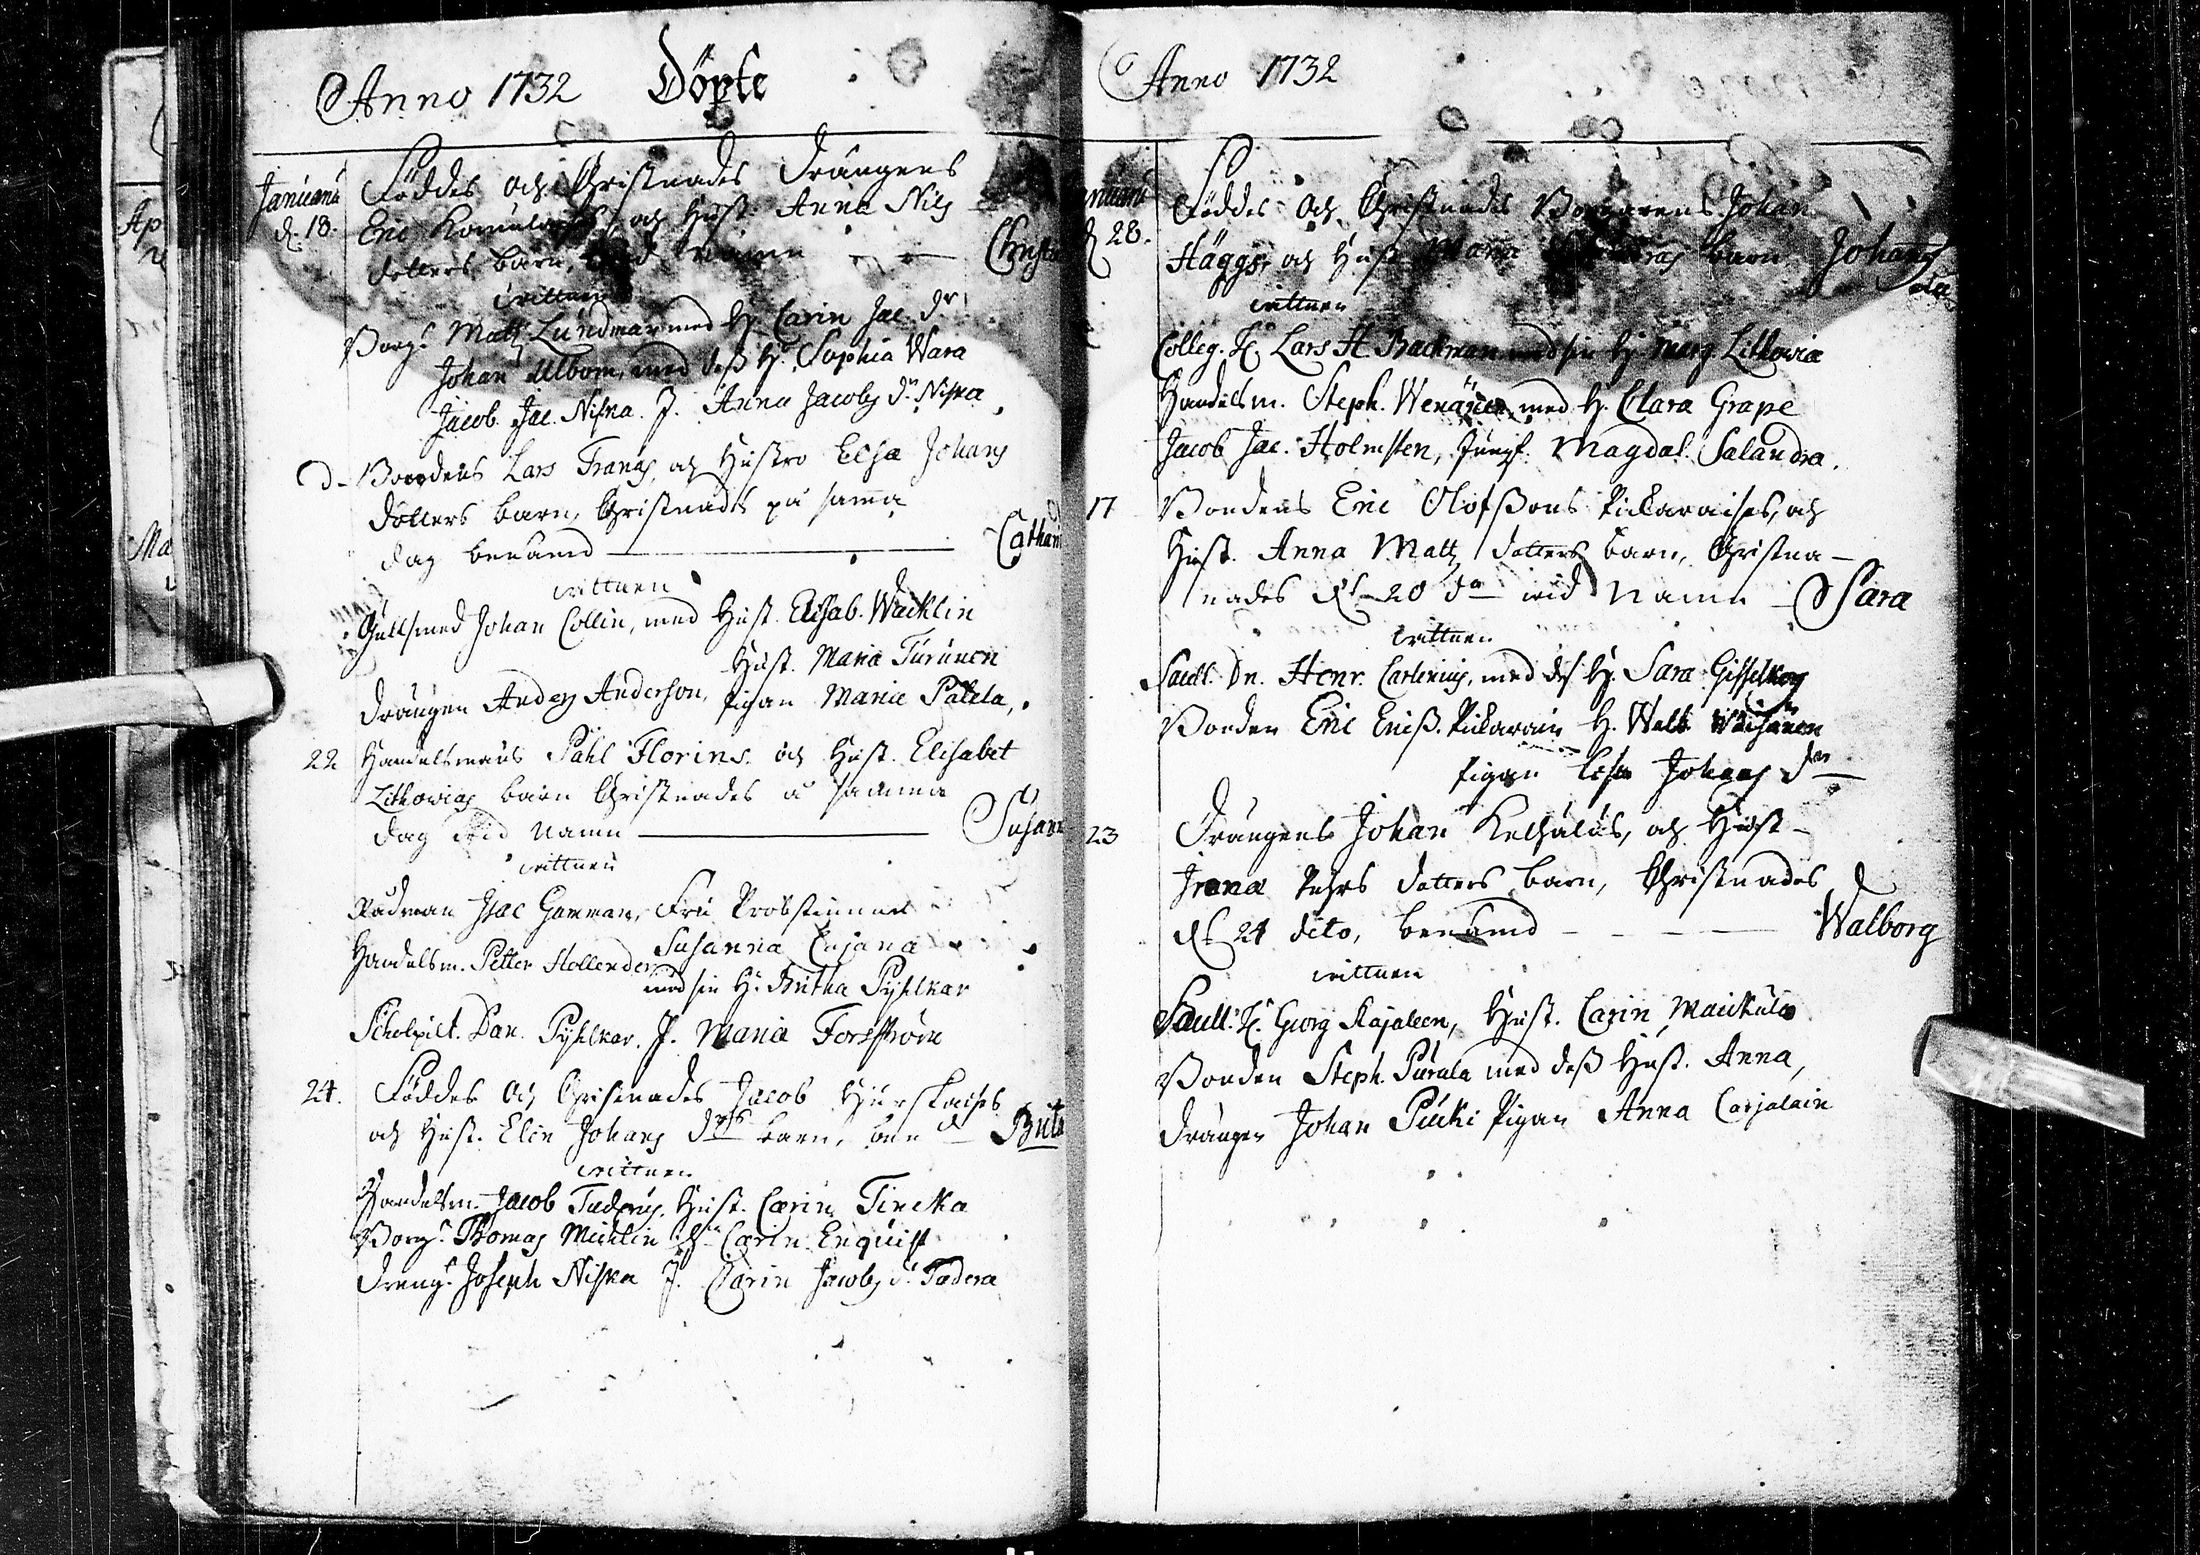 Anno 1732 Döpte
Januarii Föddes och Christnades Drängens
d. 18. Eric och Hust. Anna Nils
dotters barn, wid namn Christi
wittnen
Borg: Matts Lundmar med H. Carin Jac. dr
Johan Ulbom, med dess H. Sophia Wara
Jacob Jac. Niska. J. Anna Jacobs dr. Niska
d- Bondens Lars Frans, och Hustro Elsa Johans
dotters barn, Christnades på samma
dag benämd Cathari
wittnen
Gullsmed Johan Collin, med Hust. Elisab. Wacklin
Hust. Maria Turunen
Drängen Anders Anderson, Pigan Maria Palela,
22 Handelsmans Påhl Florins och Hust. Elisabet
Lithovias barn Christnades å samma
dag wid namn Susann
wittnen
Rådman Isac Gamman, Fru Probstinnan
Susanna Cajana
Handelsm. Petter Hollender
med sin H. Britha Pyhlkar
Dan. Pyhlkar. J. Maria Forsström
24. Föddes och Christnades Jacob
och Hust. Elin Johans drs barn, ben Brita
wittnen
Handelsm. Jacob Tuderus, Hust. Carin Tireka
Borg: Thomas Michlin Carin Enquist
Dreng: Joseph Niska J. Carin Jacobs dr. Tudera
Anno 1732
Januarii Föddes och Christnades Borgarens Johan
d 28. Häggs, och Hust. Maria barn Johannes
wittnen
Colleg. H. Lars H. Backman med sin H. Marg. Lithovia
Handelsm. Steph. med H. Clara Grape
Jacob Jac. Holmsten, Jungf. Magdal. Salandra.
17 Bondens Eric Olofssons Pickaraises, och
Hust. Anna Matts dotters barn, Christna-
nades d. 20 wid Namn Sara
wittnen
Sacell. Dn. Henr. Carlenius, med dess H. Sara
Bonden Eric Ericss. Pickarain H. Walb.
Pigan Lisa Johans dr
23 Drängens Johan Kelhälus, och Hust-
Irena Pehrs dotters barn, Christnades
d. 24 dito, benämd Walborg
wittnen
Sacell. H. Georg Rajaleen, Hust. Carin Maickula
Bonden Steph. Purala med dess Hust. Anna,
Drängen Johan Piuki Pigan Anna Carjalain